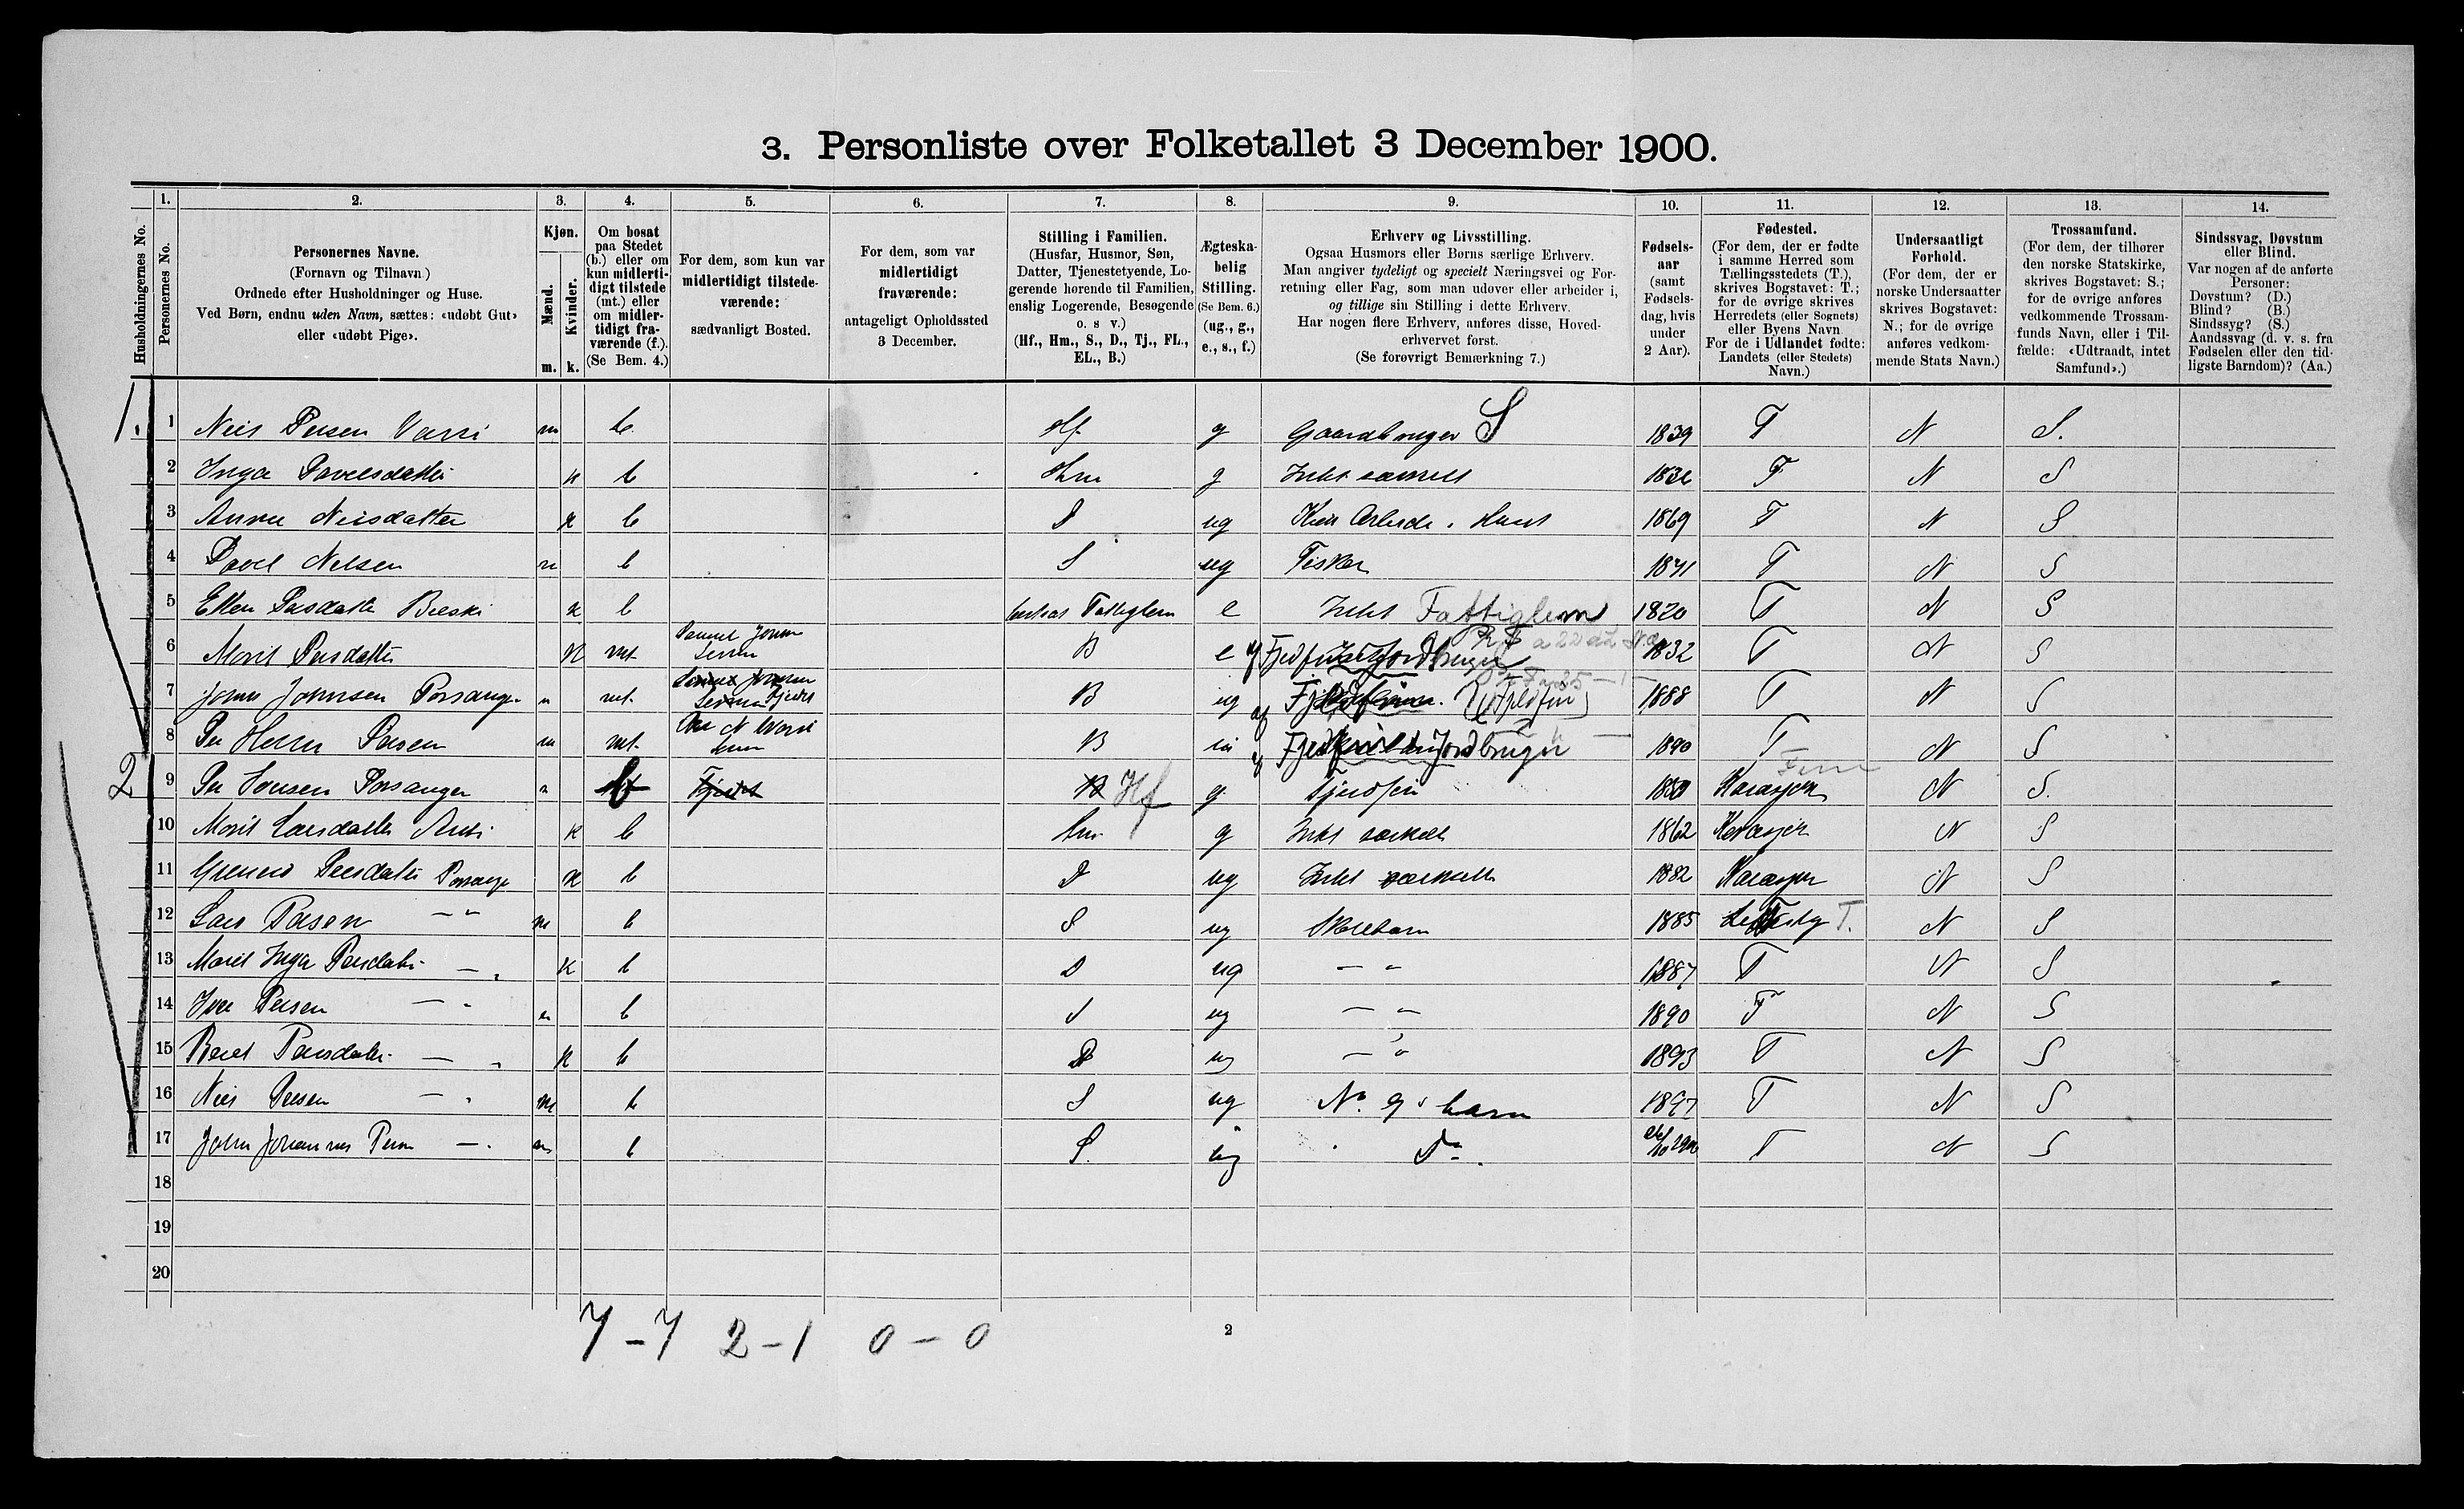 3. Personliste over Folketallet 3 December 1900.
Husholdningernes No.
1.
Personernes No.
2.
Personernes Navne.
(Fornavn og Tilnavn)
Ordnede efter Husholdninger og Huse.
Ved Børn, endnu uden Navn, sættes: «udøbt Gut»
eller «udøbt Pige».
3.
Kjøn.
Mænd.
Kvinder.
m. k.
4.
Om bosat
paa Stedet
(b.) eller om
kun midlerti-
digt tilstede
(mt.) eller
om midler-
tidigt fra-
værende (f.).
(Se Bem. 4.)
5.
For dem, som kun var
midlertidigt tilstede-
værende:
sædvanligt Bosted.
6.
For dem, som var
midlertidigt
fraværende:
antageligt Opholdssted
3 December.
7.
Stilling i Familien.
(Husfar, Husmor, Søn,
Datter, Tjenestetyende, Lo-
gerende hørende til Familien,
enslig Logerende, Besøgende
o. s v.)
(Hf., Hm., S., D., Tj., FL.,
EL., B.)
8.
Ægteska-
belig
Stilling.
(Se Bem. 6.)
(ug., g.,
e., s., f.)
9.
Erhverv og Livsstilling.
Ogsaa Husmors eller Børns særlige Erhverv.
Man angiver tydeligt og specielt Næringsvei og For-
retning eller Fag, som man udøver eller arbeider i,
og tillige sin Stilling i dette Erhverv.
Har nogen flere Erhverv, anføres disse, Hoved-
erhvervet først.
(Se forøvrigt Bemærkning 7.)
10.
Fødsels-
aar
(samt
Fødsels-
dag, hvis
under
2 Aar).
11.
Fødested.
(For dem, der er fødte
i samme Herred som
Tællingsstedets (T.),
skrives Bogstavet: T.;
for de øvrige skrives
Herredets (eller Sognets)
eller Byens Navn
For de i Udlandet fødte:
Landets (eller Stedets)
Navn.)
12.
Undersaatligt
Forhold.
(For dem, der er
norske Undersaatter
skrives Bogstavet:
N.; for de øvrige
anføres vedkom-
mende Stats Navn.)
13.
Trossamfund.
(For dem, der tilhører
den norske Statskirke,
skrives Bogstavet: S.;
for de øvrige anføres
vedkommende Trossam-
funds Navn, eller i Til-
fælde: «Udtraadt, intet
Samfund».)
14.
Sindssvag, Døvstum
eller Blind.
Var nogen af de anførte
Personer:
Døvstum? (D.)
Blind? (B.)
Sindssyg? (S.)
Aandssvag (d. v. s. fra
Fødselen eller den tid-
ligste Barndom)? (Aa.)
1. 1 Nils Persen m b. Hf g Gaardbruger S 1839 T N S.
2 Inga Povelsdatter k b Hm g Intet særskilt T N S
3 Anne Nilsdatter k b D ug 1869 T N S
4 Povel Nilsen m b S ug Fisker 1871 T N S
5 Ellen Persdatter k b Fattiglem e Intet Fattiglem 1820 T N S
6 Marit Persdatter k mt. B e 1832 T N S
7 Johnsen Porsanger m mt. B ug (Fjeldfin) 1888 T N S
8 Per Persen m mt. B 1890 T N S
2 9 Per Porsanger b Hf g Fjeldfin Karasjok N S.
10 Marit Larsdatter k b hm g Intet særskilt 1862 Karasjok N S
11 Persdatter Porsanger k b D ug Intet særskilt 1882 Karasjok N S
12 Lars Persen — " m b S ug Skolebarn 1885 T. N S
13 Marit Inga Persdatter — " k b D ug — " 1887 T N S
14 Iver Persen — " b S ug — " 1890 T N S
15 Beret Persdatter — " k b D ug — " 1893 T N S
16 Nils Persen — " m b S ug No. 9's barn 1897 T N S
17 John Johannes Persen — " m b S. ug Do. T N S
18
19
20
7 – 7 2 – 1 0 – 0
2